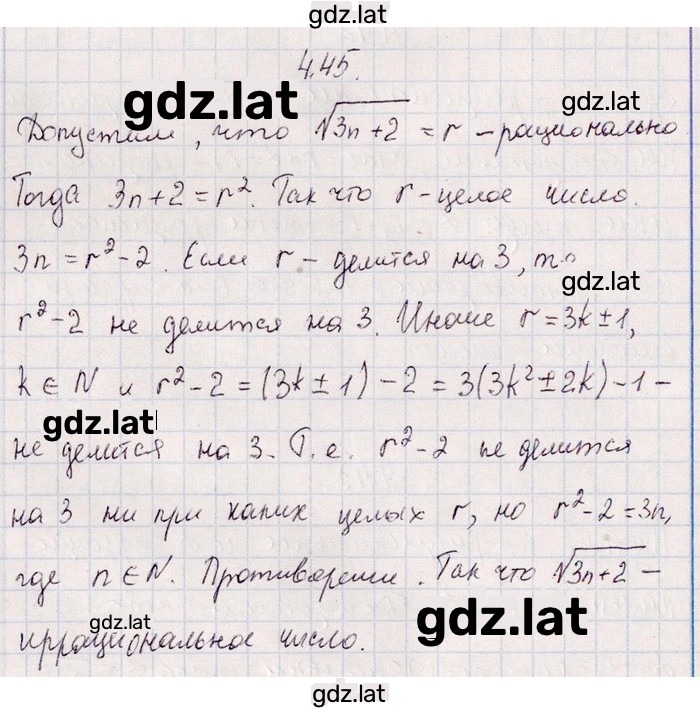 gdz.lat
4.45.
gdz.lat
gdz.lat
Допустим, что √3n+2 = r – рационально
Тогда 3n+2 = r². Так что r – целое число.
3n = r²-2. Если r – делится на 3, то
gdz.lat
r²-2 не делится на 3. Иначе r = 3k±1,
k ∈ N и r²-2 = (3k±1) - 2 = 3(3k²±2k)-1 –
gdz.lat
не делится на 3. Т.е. r²-2 не делится
на 3 ни при каких целых r, но r²-2=3n,
где n ∈ N. Противоречие. Так что √3n+2 –
gdz.lat
gdz.lat
иррациональное число.
gdz.lat